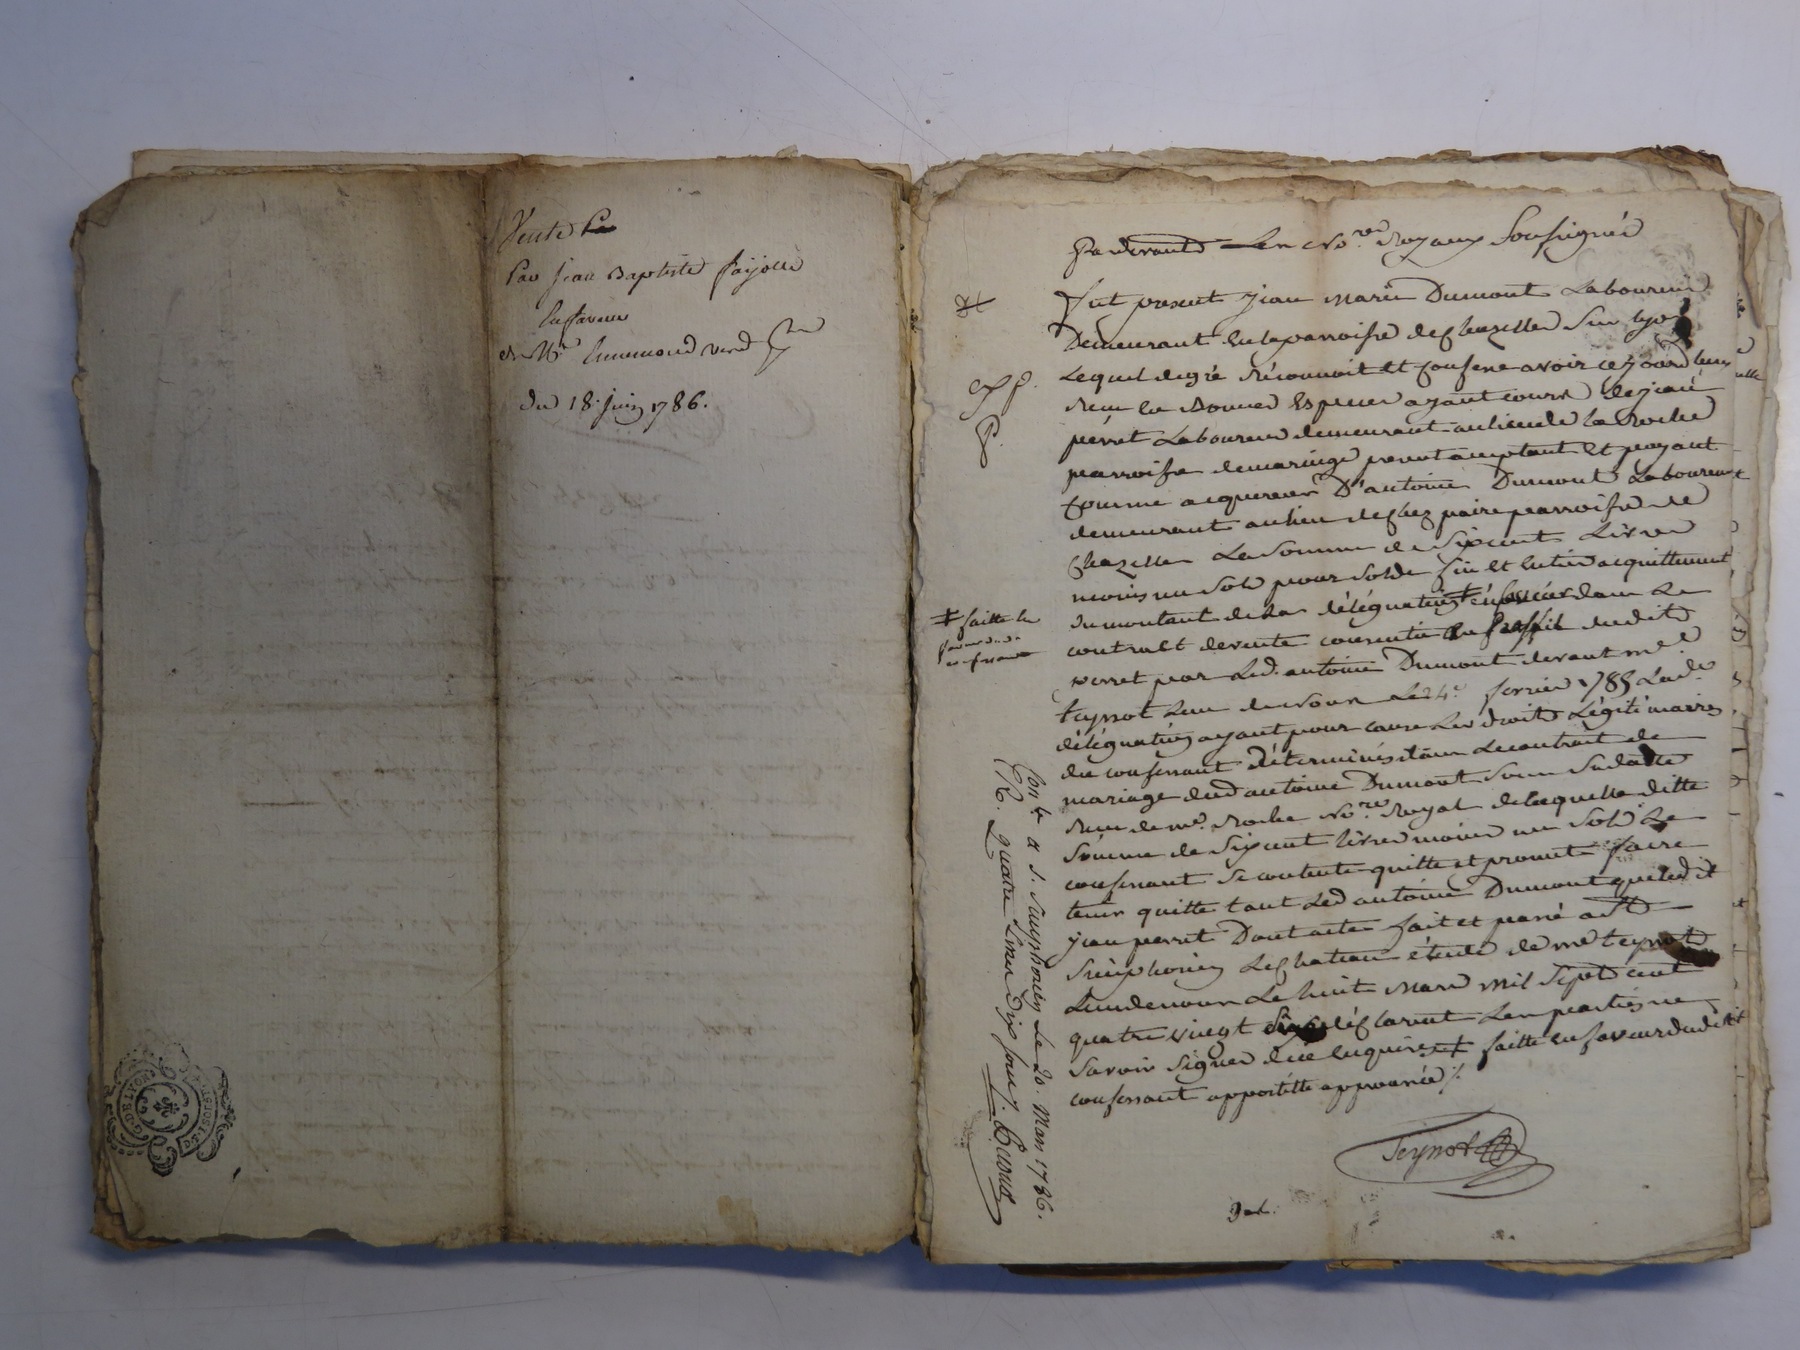 Vente Pa
Par jean Baptiste fayolle
En faveur
de Mr
du 18 juin 1786.
Pardevant Les No.res Royaux Soussignés
fut present jean marie Dumont Laboureur
Demeurant en la parroisse de chazelles Sur lyon
Lequel de gré réconnoit et confesse avoir ce jourd'huy
Reçu en Bonnes Especes ayant cours de jean
perret Laboureur demeurant au lieu de la Roche
parroisse de maringe present acceptant et payant
comme acquereur D'antoine Dumont Laboureur
demeurant au lieu de chez paire parroisse de
chazelles La Somme de Six cent Livres
moins un Sol pour Solde fin et Entier acquittement
du montant de la délégation ‡ dans Le
contract de vente consentie au proffit dudit
perret par Led. antoine Dumont devant me.
teynot L'un de nous Le 24e. fevrier 1785 Lad.e
délégation ayant pour cause Les droits Légitimaires
du confessant déterminés dans Le contrat de
mariage dud antoine Dumont Sous Sa datte
Reçu de me. Roche No.re Royal de laquelle ditte
Somme de Six cent livres moins un Sol Le
confessant Se contente quitte et promet faire
tenir quitte tant Led antoine Dumont que ledit
jean perret Dont acte fait et passé a St
Simphorien Le chateau étude de me teynot
L'un de nous Le huit mars mil Sept cent
quatre vingt Six déclarent Les parties ne
Savoir Signer de ce enquises ‡ faitte en faveur dudit
confessant appostille approuvée /.
Teynot
‡ faitte en
faveur du d.
confessant
Con.le a S. Simphorien Le 20. Mars 1786.
R. quatre Livres Dix Sous.